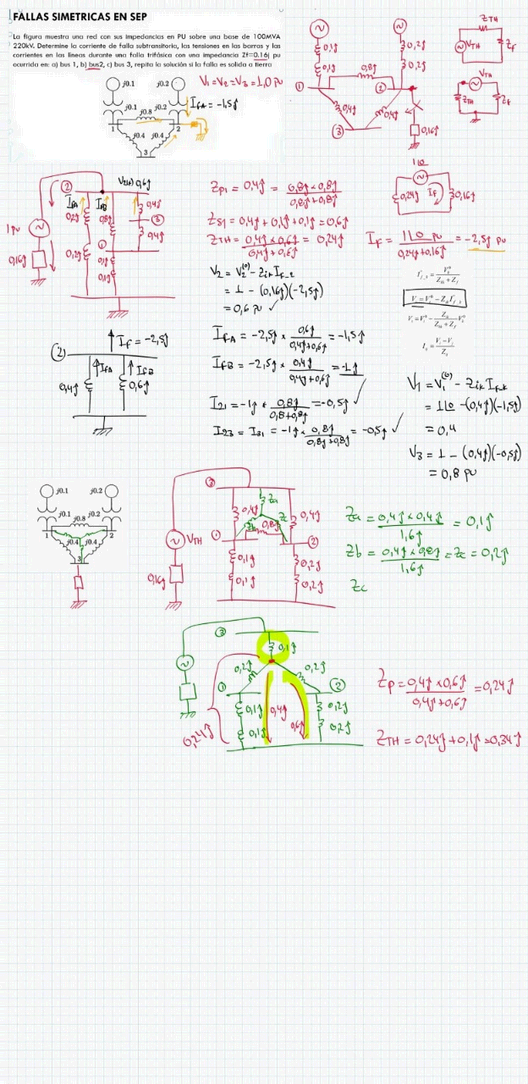 FALLAS SIMETRICAS EN SEP
La figura muestra una red con sus impedancias en PU sobre una base de 100MVA
220kV. Determine la corriente de falla subtransitoria, las tensiones en las barras y las
corrientes en las líneas durante una falla trifásica con una impedancia Zf=0.16j pu
ocurrida en: a) bus 1, b) bus2, c) bus 3, repita la solución si la falla es solida a tierra
V1=V2=V3=1,0 pu
IfA=-1,5j
j0.1 j0.2
j0.1 j0.8 j0.2
1 2
j0.4 j0.4
3
0,1j 0,2j
0,1j 0,8j 0,2j
1 2
0,4j 0,4j
3
0,16j
ZTH
VTH
Zf
VTH
ZTH Zf
2
IfA IfB
0,2j 0,8j 0,4j
3
1 pu
1
0,4j
0,16j
0,2j 0,1j
0,1j
Zp1=0,4j= 0,8j x 0,8j / 0,8j+0,8j
Zs1=0,4j+0,1j+0,1j=0,6j
ZTH= 0,4j x 0,6j / 0,4j+0,6j = 0,24j
0,24j If 0,16j
If= 1∟0 pu / 0,24j+0,16j = -2,5j pu
V2=V2(0)-Zik If-2
=1-(0,16j)(-2,5j)
=0,6 pu ✓
2
If=-2,5j
IfA IfB
0,4j 0,6j
IfA=-2,5j x 0,6j / 0,4j+0,6j = -1,5j
IfB=-2,5j x 0,4j / 0,4j+0,6j = -1j
I21=-1j x 0,8j / 0,8j+0,8j = -0,5j ✓
I23=I31=-1j x 0,8j / 0,8j+0,8j = -0,5j ✓
V1=V1(0)-Zik If-k
=1∟0-(0,4j)(-1,5j)
=0,4
V3=1-(0,4j)(-0,5j)
=0,8 pu
j0.1 j0.2
j0.1 j0.8 j0.2
1 2
j0.4 j0.4
3
3
Za
0,4j 0,4j
Zb Zc
VTH 1 0,8j 2
0,16j 0,1j 0,2j
0,1j 0,2j
Za= 0,4j x 0,4j / 1,6j = 0,1j
Zb= 0,4j x 0,8j / 1,6j = Zc = 0,2j
Zc
3
0,1j
0,2j 0,2j
1 2
0,1j 0,4j 0,2j
0,1j 0,6j 0,2j
0,24j
Zp= 0,4j x 0,6j / 0,4j+0,6j = 0,24j
ZTH=0,24j+0,1j=0,34j